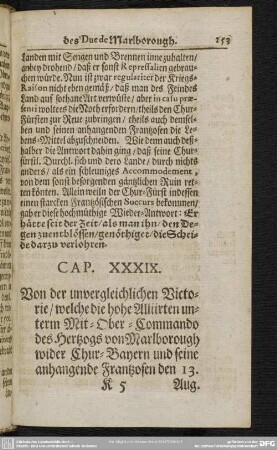 des Duc de Marlborough. 153
Landen mit Sengen und Brennen inne zuhalten/
anbey drohend / daß er sonst Repressalien gebrau-
chen würde. Nun ist zwar regulariter der Kriegs-
Raison nicht eben gemäß / daß man des Feindes
Land auf sothane Art verwüste / aber in casu præ-
senti wolte es die Noth erfordern; theils den Chur-
Fürsten zur Reue zubringen / theils auch demsel-
ben und seinen anhangenden Frantzosen die Le-
bens-Mittel abzuschneiden. Wie denn auch deß-
halber die Antwort dahin ging / daß seine Chur-
fürstl. Durchl. sich und dero Lande / durch nichts
anders / als ein schleuniges Accommodement,
von dem sonst besorgenden gäntzlichen Ruin ret-
ten könten. Allein weiln der Chur-Fürst indessen
einen starcken Frantzösischen Succurs bekommen/
gab er diese hochmüthige Wieder-Antwort: Er
hätte seit der Zeit / als man ihn / den De-
gen zu entblössen / genöthiget / die Schei-
de darzu verlohren.
CAP. XXXIX.
Von der unvergleichlichen Victo-
rie / welche die hohe Alliirten un-
term Mit-Ober-Commando
des Hertzogs von Marlborough
wider Chur-Bayern und seine
anhangende Frantzosen den 13.
K 5 Aug.